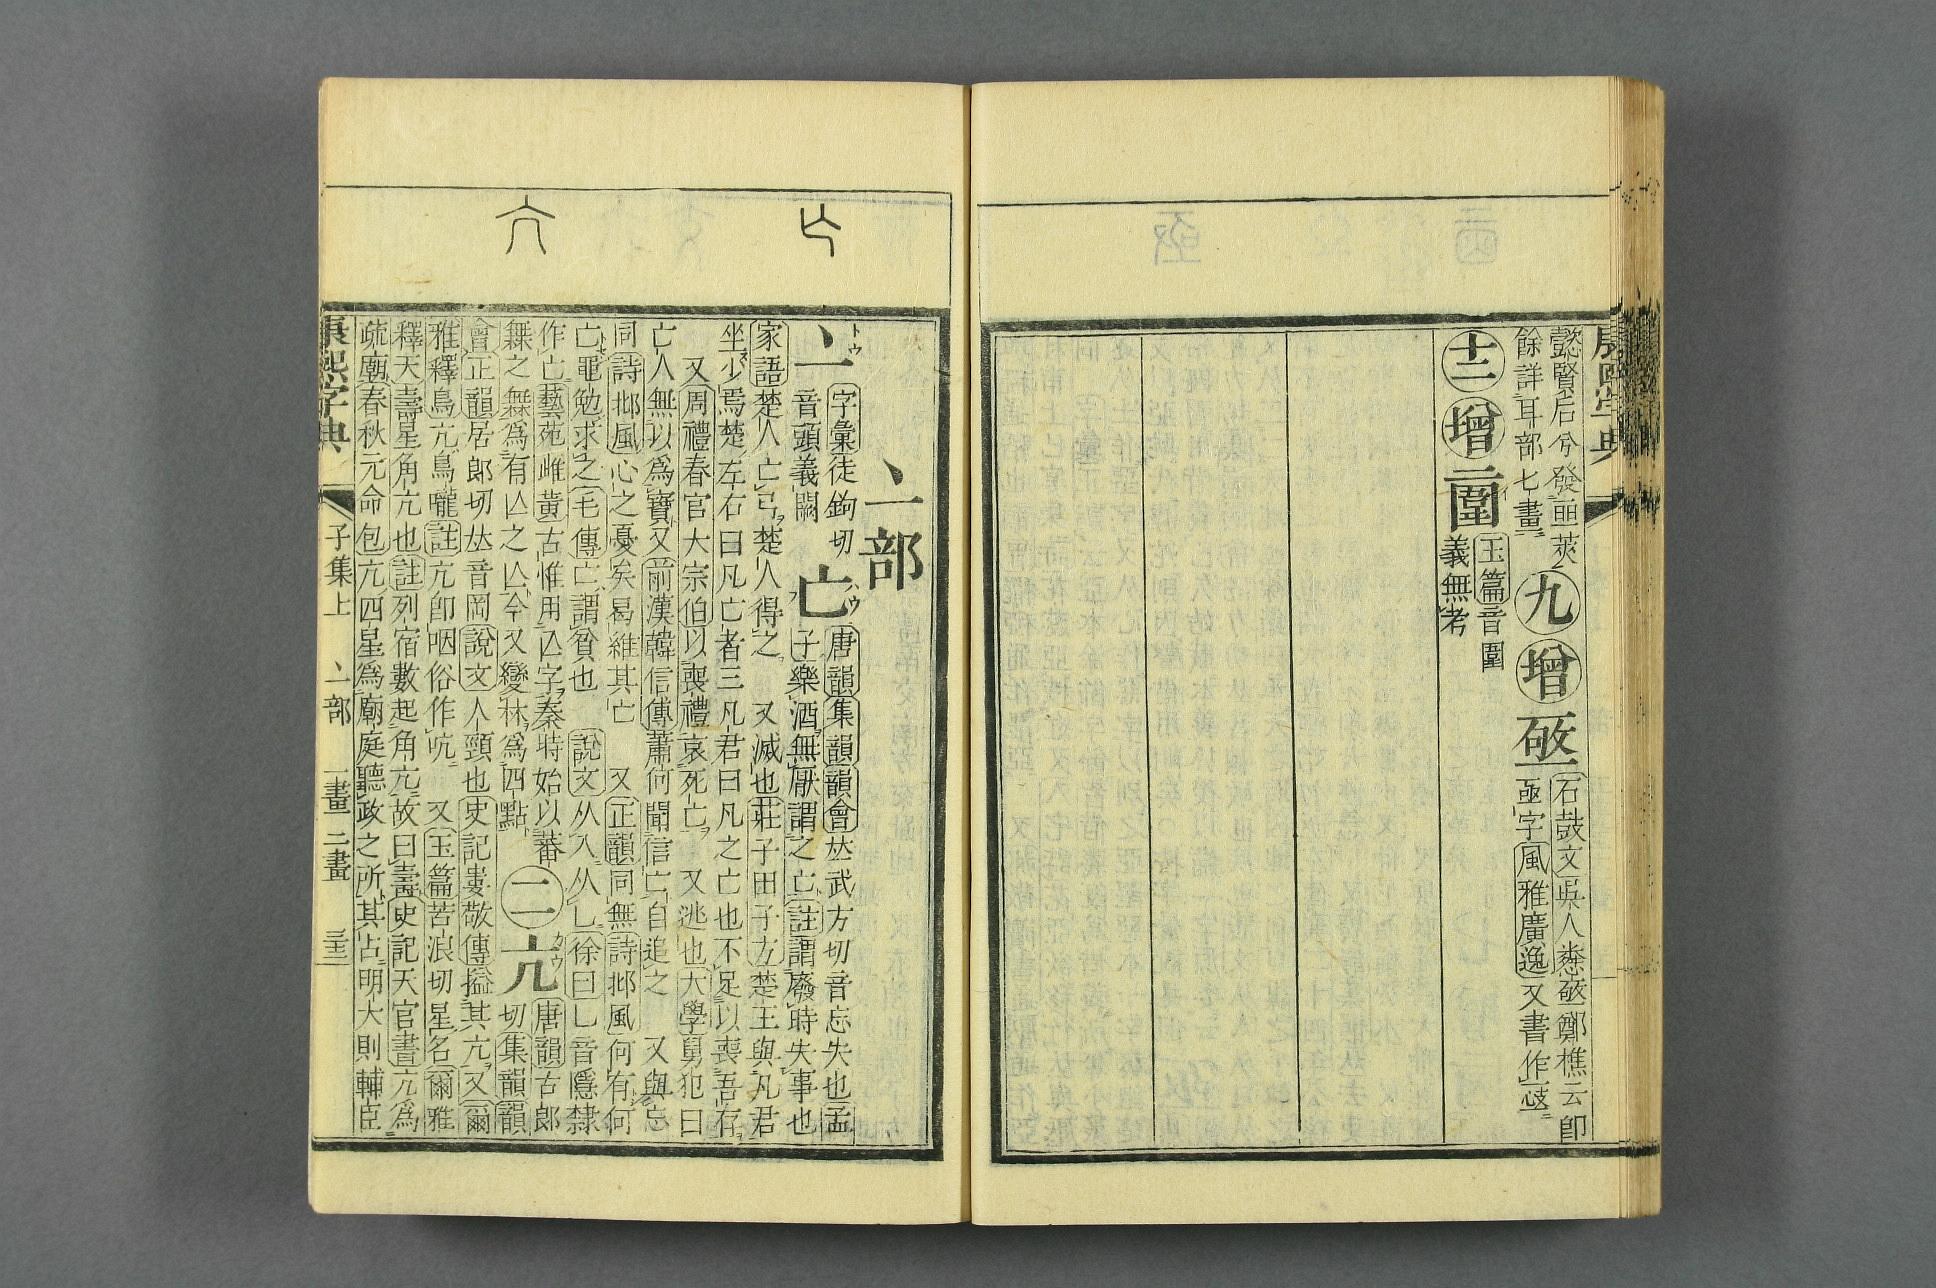 康熙字典
懿賢后兮發亞莢
餘詳耳部七畫
九
增
石鼓文吳人憐亟鄭樵云卽
亟字風雅廣逸又書作
十二
增
玉篇音圍
義無考
亠部
亠
トウ
字彙徒鉤切
音頭義闕
亡
ハウ
唐韻集韻韻會𠀤武方切音忘失也孟
子樂酒無厭謂之亡註謂廢時失事也
家語楚人亡弓楚人得之 又滅也莊子田子方楚王與凡君
坐少焉楚左右曰凡亡者三凡君曰凡之亡也不足以喪吾存
又周禮春官大宗伯以喪禮哀死亡 又逃也大學舅犯曰
亡人無以爲寶又前漢韓信傳蕭何聞信亡自追之 又與忘
同詩邶風心之憂矣曷維其亡 又正韻同無詩邶風何有何
亡黽勉求之毛傳亡謂貧也 說文从入从乚徐曰乚音隱隸
作亡藝苑雌黃古惟用亾字秦時始以蕃
橆之橆爲有亾之亾今又變林爲四點
二
亢
カウ
唐韻古郞
切集韻韻
會正韻居郞切𠀤音岡說文人頸也史記婁敬傳搤其亢又爾
雅釋鳥亢鳥嚨註亢卽咽俗作吭 又玉篇苦浪切星名爾雅
釋天壽星角亢也註列宿數起角亢故曰壽史記天官書亢爲
疏廟春秋元命包亢四星爲廟庭聽政之所其占明大則輔臣
康熙字典
子集上
亠部
一畫 二畫